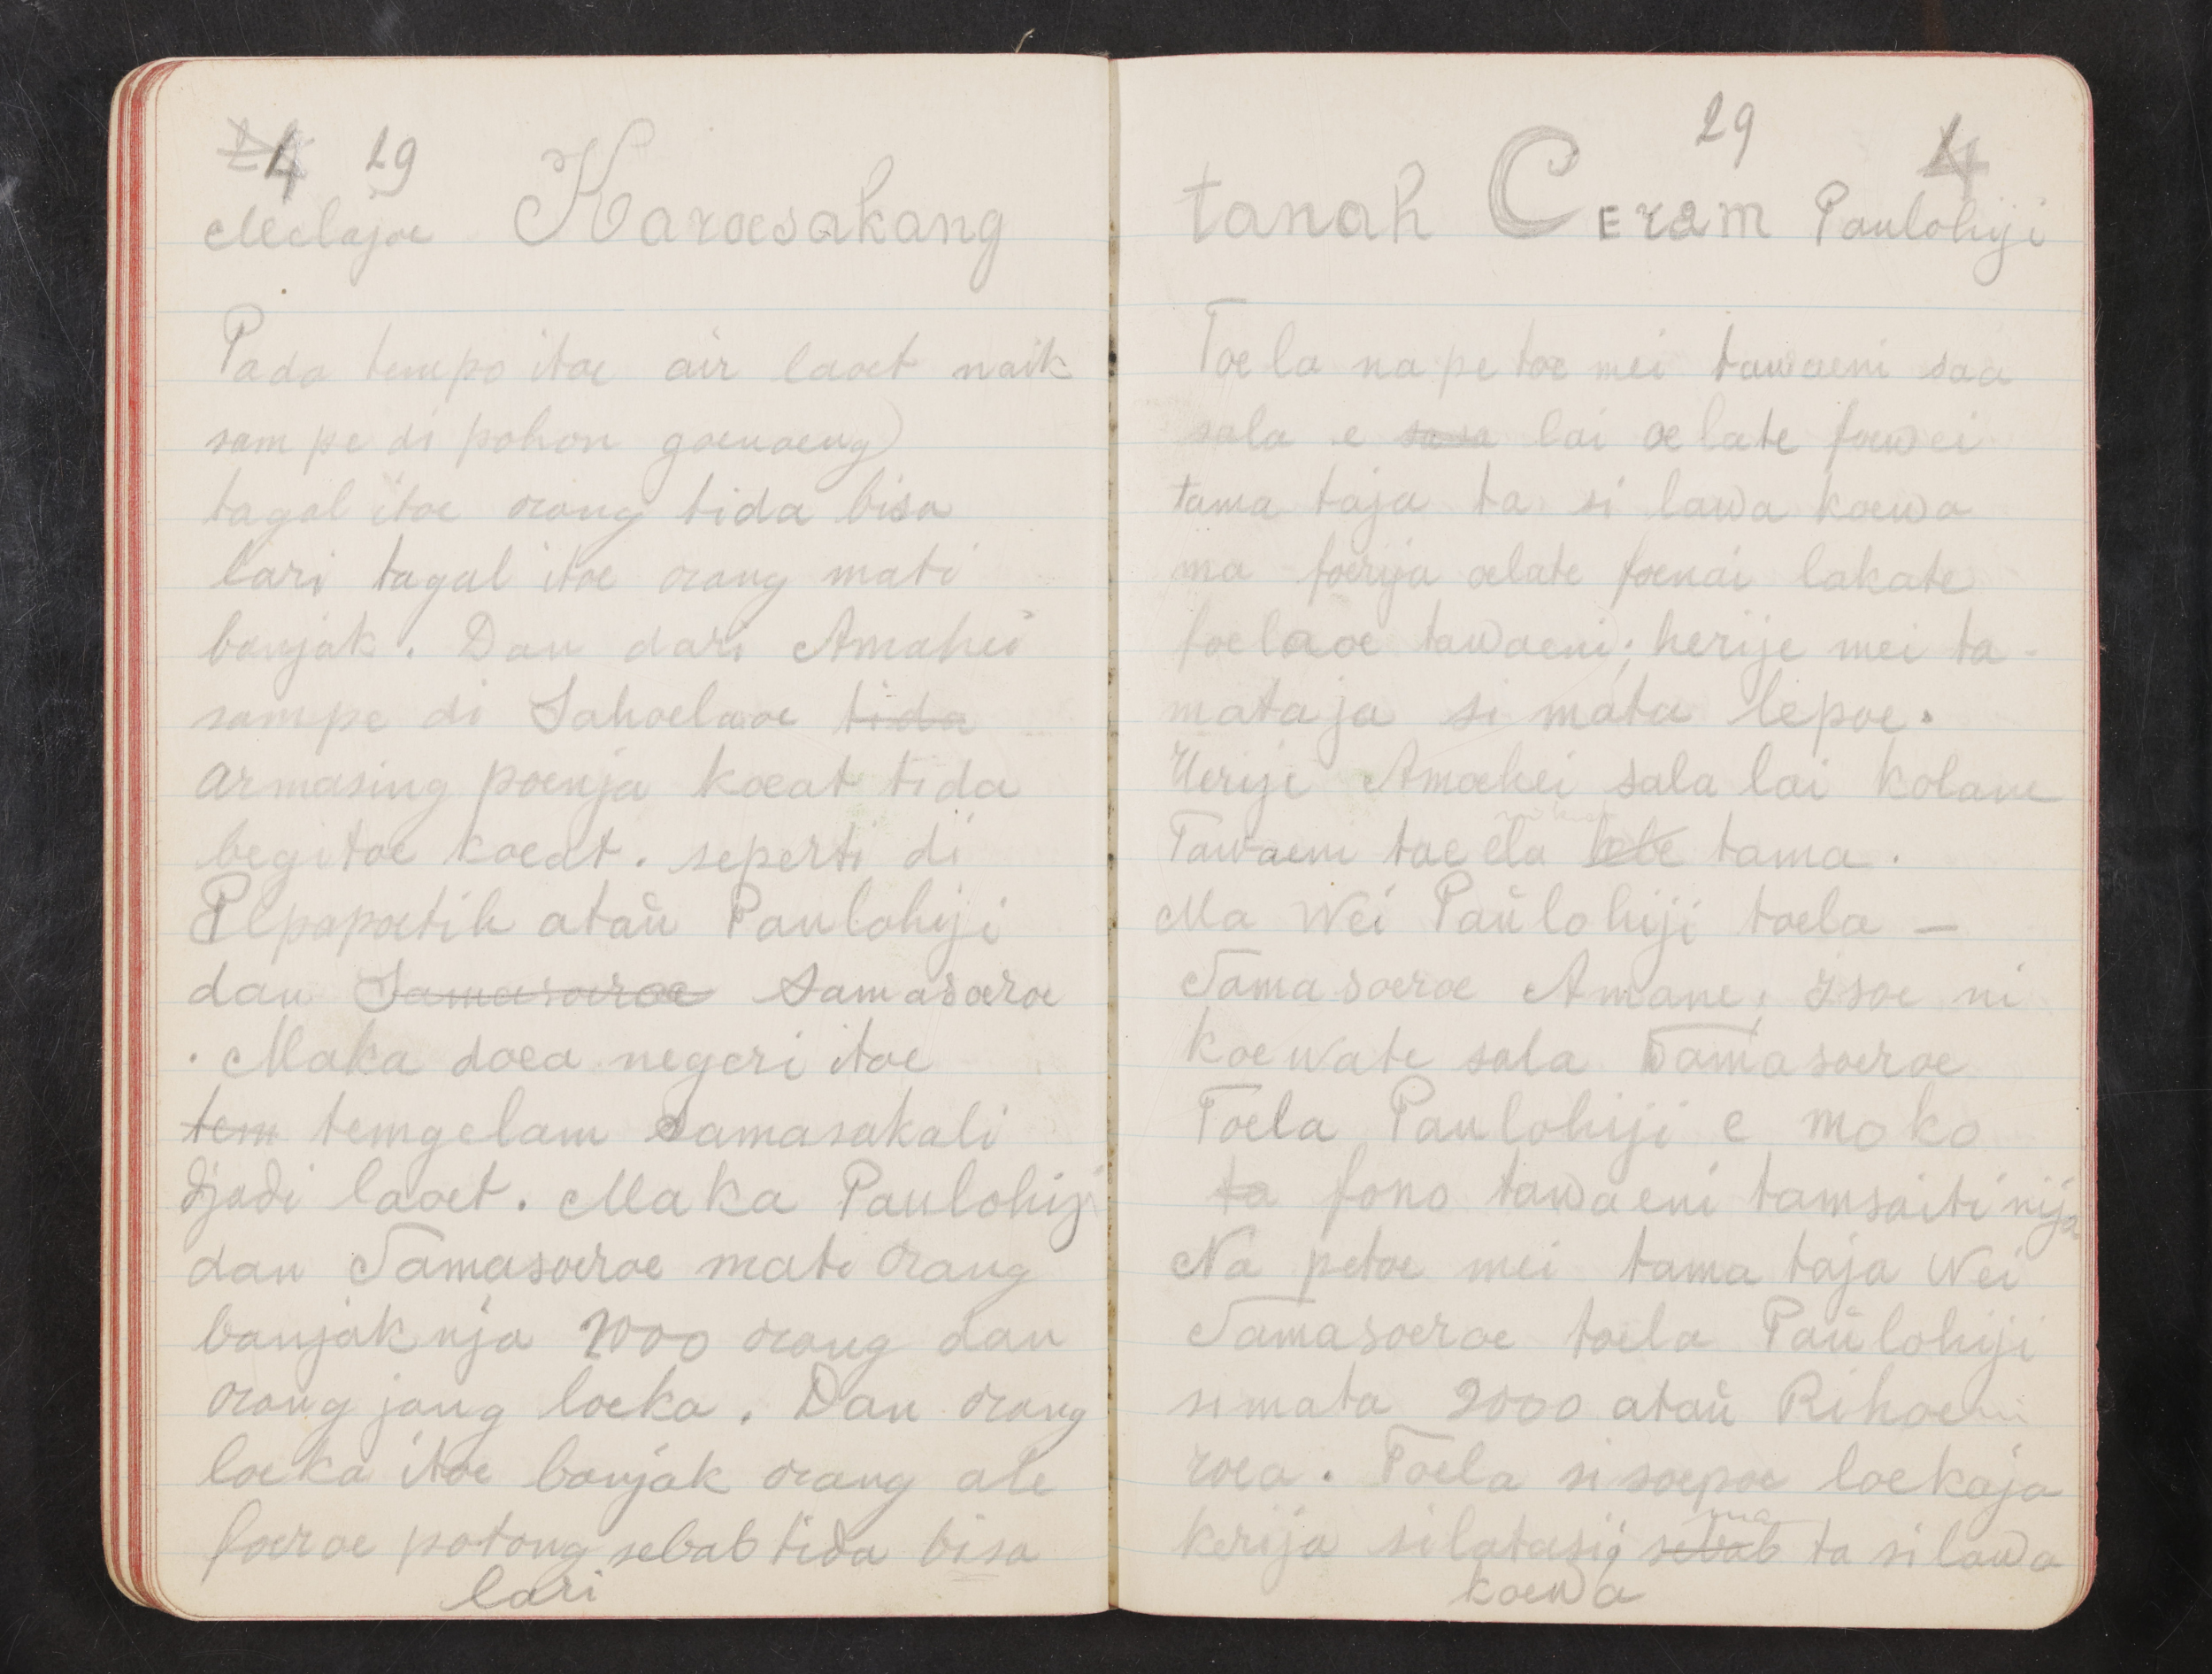 4 29
Melajoe Karoesakang
Pada tempo itoe air laoet naik
sampe di pohon goenoeng
tagal itoe orang tida bisa
lari tagal itoe orang mati
banjak. Dan dari Amahei
sampe di Sahoelaoe tida
armasing poenja koeat tida
begitoe koeat. seperti di
Elpapoetih ataŭ Paulohiji
dan Samasoeroe Samasoeroe
. Maka doea negeri itoe
tem temgelam samasakali
djadi laoet. Maka Paulohiji
dan Samasoeroe mati orang
banjaknja 2000 orang dan
orang jang loeka. Dan orang
loeka itoe banjak orang ale
foeroe potong sebab tida bisa
lari
29 4
tanah Ceram Paulohiji
Toela na petoe mei tawaeni saa
sala e sasa lai oelate foewei
tama taja ta si lawa koewa
ma foerija oelate foenai lakate
foelaoe tawaeni; herije mei ta-
mataja si mata lepoe.
Herije Amahei sala lai Kolane
Tawaeni toe ela tama.
Ma Wei Paŭlohiji toela —
Samasoeroe Amane; Isoe ni
koewate sala Samasoeroe
Toela Paulohiji e moko
ta fono tawaeni tamsaiti nija
Na petoe mei tama taja Wei
Samasoeroe toela Paŭlohiji
simata 2000 ataŭ Rihoeni
roea. Toela si soepoe loekaja
kerija silatasij sebab ma ta si lawa
koewa